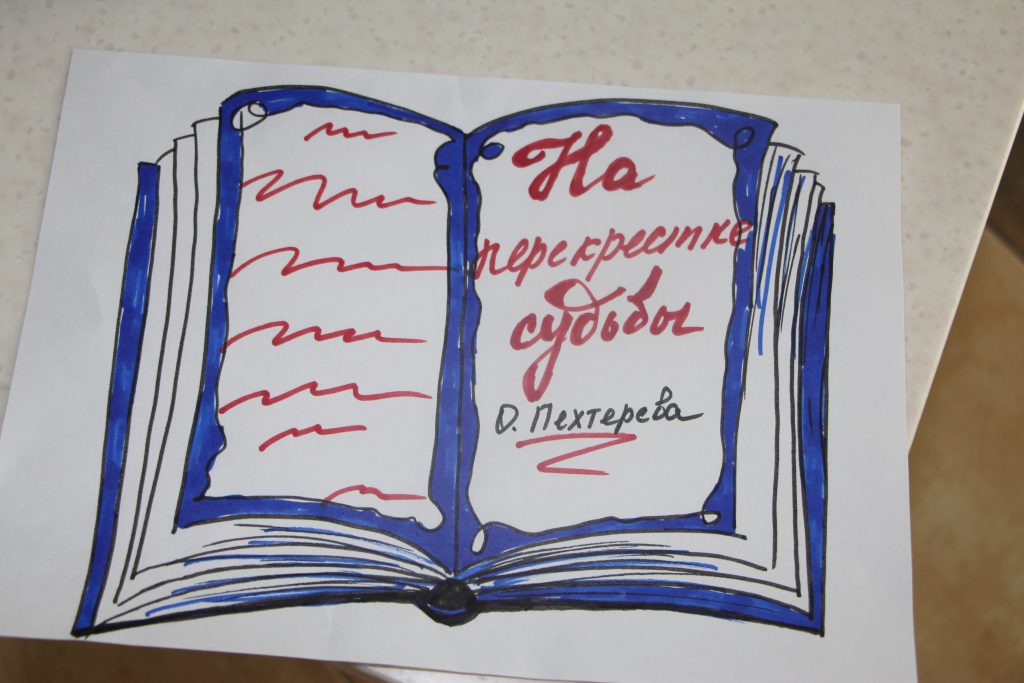 На
перекрестке
судьбы
О. Пехтерева